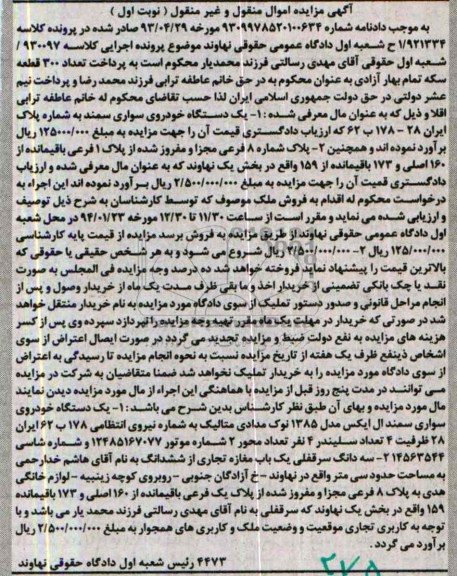 آگهی مزایده اموال منقول و غیر منقول ( نوبت اول )
به موجب دادنامه شماره ۹۳۰۹۹۷۸۵۲۰۱۰۰۶۳۴ مورخه ۹۳/۰۴/۲۹ صادر شده در پرونده کلاسه
۱/۹۲۱۳۳۴ ح شعبه اول دادگاه عمومی حقوقی نهاوند موضوع پرونده اجرایی کلاسه ۹۳۰۰۹۷ /
شعبه اول حقوقی آقای مهدی رسالتی فرزند محمدیار محکوم است به پرداخت تعداد ۳۰۰ قطعه
سکه تمام بهار آزادی به عنوان محکوم به در حق خانم عاطفه ترابی فرزند محمد رضا و پرداخت نیم
عشر دولتی در حق دولت جمهوری اسلامی ایران لذا حسب تقاضای محکوم له خانم عاطفه ترابی
اقلا و ذیل که به عنوان مال معرفی شده : ۱- یک دستگاه خودروی سواری سمند به شماره پلاک
ایران ۲۸ - ۱۷۸ ب ۶۲ که ارزیاب دادگستری قیمت آن را جهت مزایده به مبلغ ۱۲۵۰۰۰/۰۰۰ ریال
برآورد نموده اند و همچنین ۲- پلاک شماره ۸ فرعی مجزا و مفروز شده از پلاک ۱ فرعی باقیمانده از
۱۶۰ اصلی و ۱۷۳ باقیمانده از ۱۵۹ واقع در بخش یک نهاوند که به عنوان مال معرفی شده و ارزیاب
دادگستری قمیت آن را جهت مزایده به مبلغ ۲/۵۰۰/۰۰۰/۰۰۰ ریال برآورد نموده اند این اجراء به
درخواست محکوم له اقدام به فروش ملک موصوف که توسط کارشناسان به شرح ذیل توصیف
و ارزیابی شده می نماید و مقرر است از ساعت ۱۱/۳۰ تا ۱۲/۳۰ مورخه ۹۴/۰۱/۲۳ در محل شعبه
اول دادگاه عمومی حقوقی نهاوند از طریق مزایده به فروش برسد مزایده از قیمت پایه کارشناسی
۱۲۵/۰۰۰/۰۰۰ ریال ۲- ۲/۵۰۰/۰۰۰/۰۰۰ ریال شروع می شود و به هر شخص حقیقی یا حقوقی که
بالاترین قیمت را پیشنهاد نماید فروخته خواهد شد ده درصد وجه مزایده فی المجلس به صورت
نقد یا چک بانکی تضمینی از خریدار اخذ و ما بقی ظرف مدت یک ماه از خریدار وصول و پس از
انجام مراحل قانونی و صدور دستور تملیک از سوی دادگاه مورد مزایده به نام خریدار منتقل خواهد
شد در صورتی که خریدار در مهلت یک ماه مقرر تهیه وجه مزایده را نپردازد سپرده وی پس از کسر
هزینه های مزایده به نفع دولت ضبط و مزایده تجدید می گردد در صورت ایصال اعتراض از سوی
اشخاص ذینفع ظرف یک هفته از تاریخ مزایده نسبت به نحوه انجام مزایده تا رسیدگی به اعتراض
از سوی دادگاه مورد مزایده را به خریدار تملیک نخواهد شد ضمنا متقاضیان به شرکت در مزایده
می توانند در مدت پنج روز قبل از مزایده با هماهنگی این اجراء از مال مورد مزایده دیدن نمایند
مال مورد مزایده و بهای آن طبق نظر کارشناس بدین شرح می باشد : ۱- یک دستگاه خودروی
سواری سمند ال ایکس مدل ۱۳۸۵ نوک مدادی متالیک به شماره نیروی انتظامی ۱۷۸ ب ۶۲ ایران
۲۸ ظرفیت ۴ تعداد سیلیندر ۴ نفر تعداد محور ۲ شماره موتور ۱۲۴۸۵۱۶۷۰۷۷ و شماره شاسی
۱۴۵۶۳۵۴۴ ۲- سه دانگ سرقفلی یک باب مغازه تجاری از ششدانگ به نام آقای هاشم خدارحمی
به مساحت حدود سی متر واقع در نهاوند - خ آزادگان جنوبی - روبروی کوچه زینبیه - لوازم خانگی
هدی به پلاک ۸ فرعی مجزا و مفروز شده از پلاک یک فرعی باقیمانده از ۱۶۰ اصلی و ۱۷۳ باقیمانده
۱۵۹ واقع در بخش یک نهاوند که سرقفلی به نام آقای مهدی رسالتی فرزند محمد یار می باشد و با
توجه به کاربری تجاری موقعیت و وضعیت ملک و کاربری های همجوار به مبلغ ۲/۵۰۰/۰۰۰/۰۰۰ ریال
برآورد می گردد.
۴۴۷۳ رئیس شعبه اول دادگاه حقوقی نهاوند